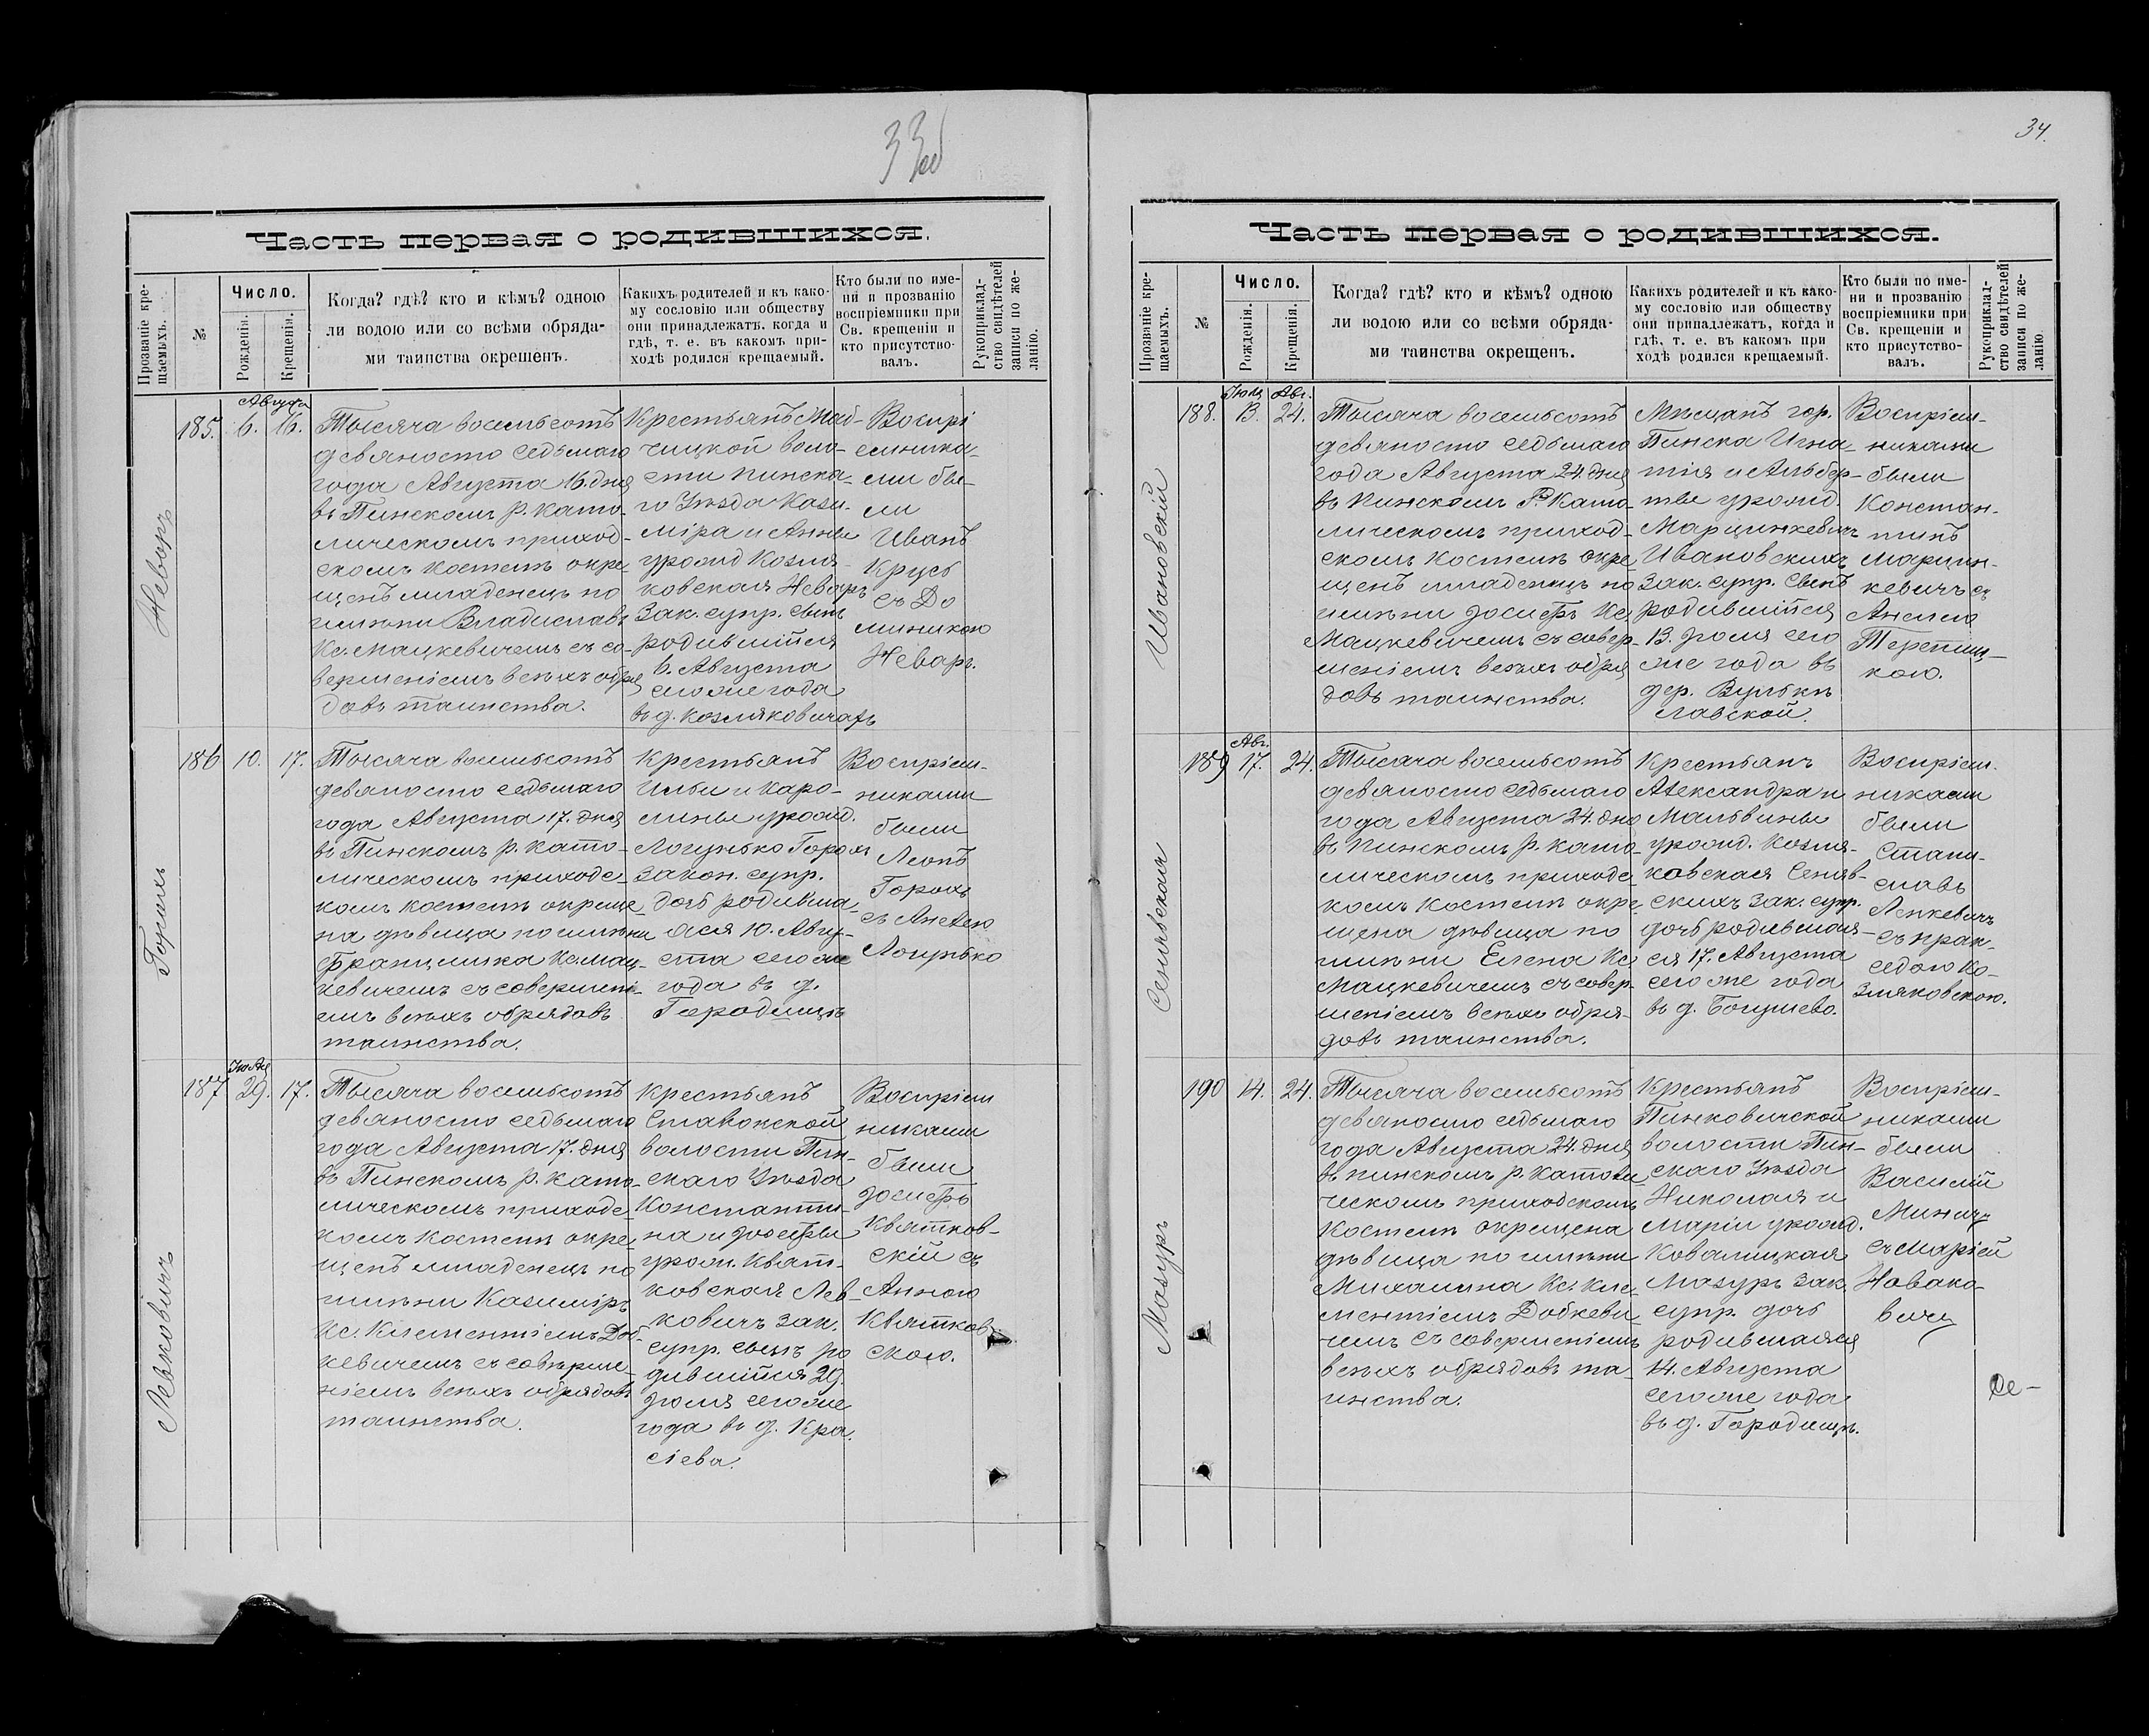 33об
Часть первая о родившихся.
Прозваніе кре-
щаемыхъ.
№
Число.
Рожденія.
Крещенія.
Когда? гдѣ? кто и кѣмъ? одною
ли водою или со всѣми обряда-
ми таинства окрещенъ.
Какихъ родителей и къ како-
му сословію или обществу
они принадлежатъ, когда и
гдѣ, т. е. въ какомъ при-
ходѣ родился крещаемый.
Кто были по име-
ни и прозванію
воспріемники при
Св. крещеніи и
кто присутство-
валъ.
Рукоприклад-
ство свидѣтелей
записи по же-
ланію.
Неворъ
185.
Августа
6. 16.
Тысяча восемьсотъ
девяносто седьмаго
года Августа 16. дня
въ Пинскомъ р. като-
лическомъ приход-
скомъ костелѣ окре
щенъ младенецъ по
имени Владиславъ
Кс. Мацкевичемъ съ со-
вершеніемъ всѣхъ обря
довъ таинства.
Крестьянъ
чицкой воло-
сти Пинска-
го Уѣзда Кази-
міра и Анны
урожд Козля-
ковская Неворъ
Зак. супр. сынъ
родившійся
6. Августа
сего же года
въ д. Козляковичахъ
Воспрі
емника-
ми бы-
ли
Иванъ
Крусь
съ До
миникою
Неваръ.
Горахъ
186 10. 17.
Тысяча восемьсотъ
девяносто седьмаго
года Августа 17. дня
въ Пинскомъ р. като-
лическомъ приходс-
комъ костелѣ окреще
на дѣвица по имени
Франциска Кс. Мац-
кевичемъ съ совершені-
емъ всѣхъ обрядовъ
таинства.
Крестьянъ
Ильи и Каро-
лины урожд.
Логунько Горохъ
Закон. супр.
дочь родивша-
яся 10. Авгу-
ста сего же
года въ д.
Городищѣ
Воспріем-
никами
были
Леонъ
Горохъ
съ Анелею
Логунько
Левковичъ
187
Іюля
29. 17.
Тысяча восемьсотъ
девяносто седьмаго
года Августа 17. дня
въ Пинскомъ р. като-
лическомъ приходс-
комъ костелѣ окре
щенъ младенецъ по
имени Казиміръ
Кс. Клементіемъ Доб-
кевичемъ съ соверше-
ніемъ всѣхъ обрядовъ
таинства.
Крестьянъ
Ставокской
волости Пин-
скаго Уѣзда
Константи-
на и Іозефы
урож. Квят-
ковская Лев-
ковичъ зак.
супр. сынъ ро
дившійся 29.
Іюля сего же
года въ д. Кра
сіева.
Воспріем
никами
были
Іосифъ
Квятков-
скій съ
Анною
Квятков
скою.
34.
Часть первая о родившихся.
Прозваніе кре-
щаемыхъ.
№
Число.
Рожденія.
Крещенія.
Когда? гдѣ? кто и кѣмъ? одною
ли водою или со всѣми обряда-
ми таинства окрещенъ.
Какихъ родителей и къ како-
му сословію или обществу
они принадлежатъ, когда и
гдѣ, т. е. въ какомъ при
ходѣ родился крещаемый.
Кто были по име-
ни и прозванію
воспріемники при
Св. крещеніи и
кто присутство-
валъ.
Рукоприклад-
ство свидѣтелей
записи по же-
ланію
Ивановскій
188.
Іюля Авг.
13. 24.
Тысяча восемьсотъ
девяносто седьмаго
года Августа 24. дня
въ Пинскомъ Р. Като-
лическомъ приход-
скомъ Костелѣ окре
щенъ младенецъ по
имени Іосифъ Кс.
Мацкевичемъ съ совер-
шеніемъ всѣхъ обря
довъ таинства.
Мѣщанъ гор.
Пинска Игна-
тія и Альбер-
ты урожд.
Марцинкевичъ
Ивановскихъ
Зак. супр. сынъ
родившійся
13. Іюля сего
же года въ
дер. Вулькѣ
Лавской.
Воспріем-
никами
были
Констан-
тинъ
Марцин-
кевичъ съ
Анелею
кою.
Сенявская
189
Авг.
17. 24.
Тысяча восемьсотъ
девяносто седьмаго
года Августа 24. дня
въ Пинскомъ р. като-
лическомъ приходс-
комъ костелѣ окре
щена дѣвица по
имени Елена Кс.
Мацкевичемъ съ совер-
шеніемъ всѣхъ обря-
довъ таинства.
Крестьянъ
Александра и
Мальвины
урожд. Козля-
ковская Сеняв-
скихъ зак. супр.
дочь родившая-
ся 17. Августа
сего же года
въ д. Богушево.
Воспріем-
никами
были
Стани-
славъ
Ленкевичъ
съ Прак-
седою Ко-
зляковскою.
Мазуръ
190 14. 24.
Тысяча восемьсотъ
девяносто седьмаго
года Августа 24. дня
въ Пинскомъ р. католи
ческомъ приходскомъ
Костелѣ окрещена
дѣвица по имени
Михалина Кс. Кле-
ментіемъ Добкеви
чемъ съ совершеніемъ
всѣхъ обрядовъ та-
инства.
Крестьянъ
Пинковичской
волости Пин-
скаго Уѣзда
Николая и
Маріи урожд.
Ковалицкая
Мазуръ зак.
супр. дочь
родившаяся
14. Августа
сего же года
въ д. Городищѣ.
Воспріем-
никами
были
Василій
Миничъ
съ Маріей
Новако-
вичъ
Се-